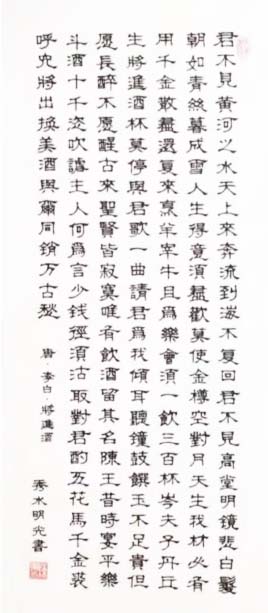 君不見黃河之水天上來奔流到海不復回君不見高堂明鏡悲白髮
朝如青絲暮成雪人生得意須盡歡莫使金樽空對月天生我材必有
用千金散盡還復來烹羊宰牛且為樂會須一飲三百杯岑夫子丹丘
生將進酒杯莫停與君歌一曲請君為我傾耳聽鐘鼓饌玉不足貴但
願長醉不願醒古來聖賢皆寂寞唯有飲酒留其名陳王昔時宴平樂
斗酒十千恣歡謔主人何為言少錢徑須沽取對君酌五花馬千金裘
呼兒將出換美酒與爾同銷万古愁
唐·李白·將進酒
秀水明光書